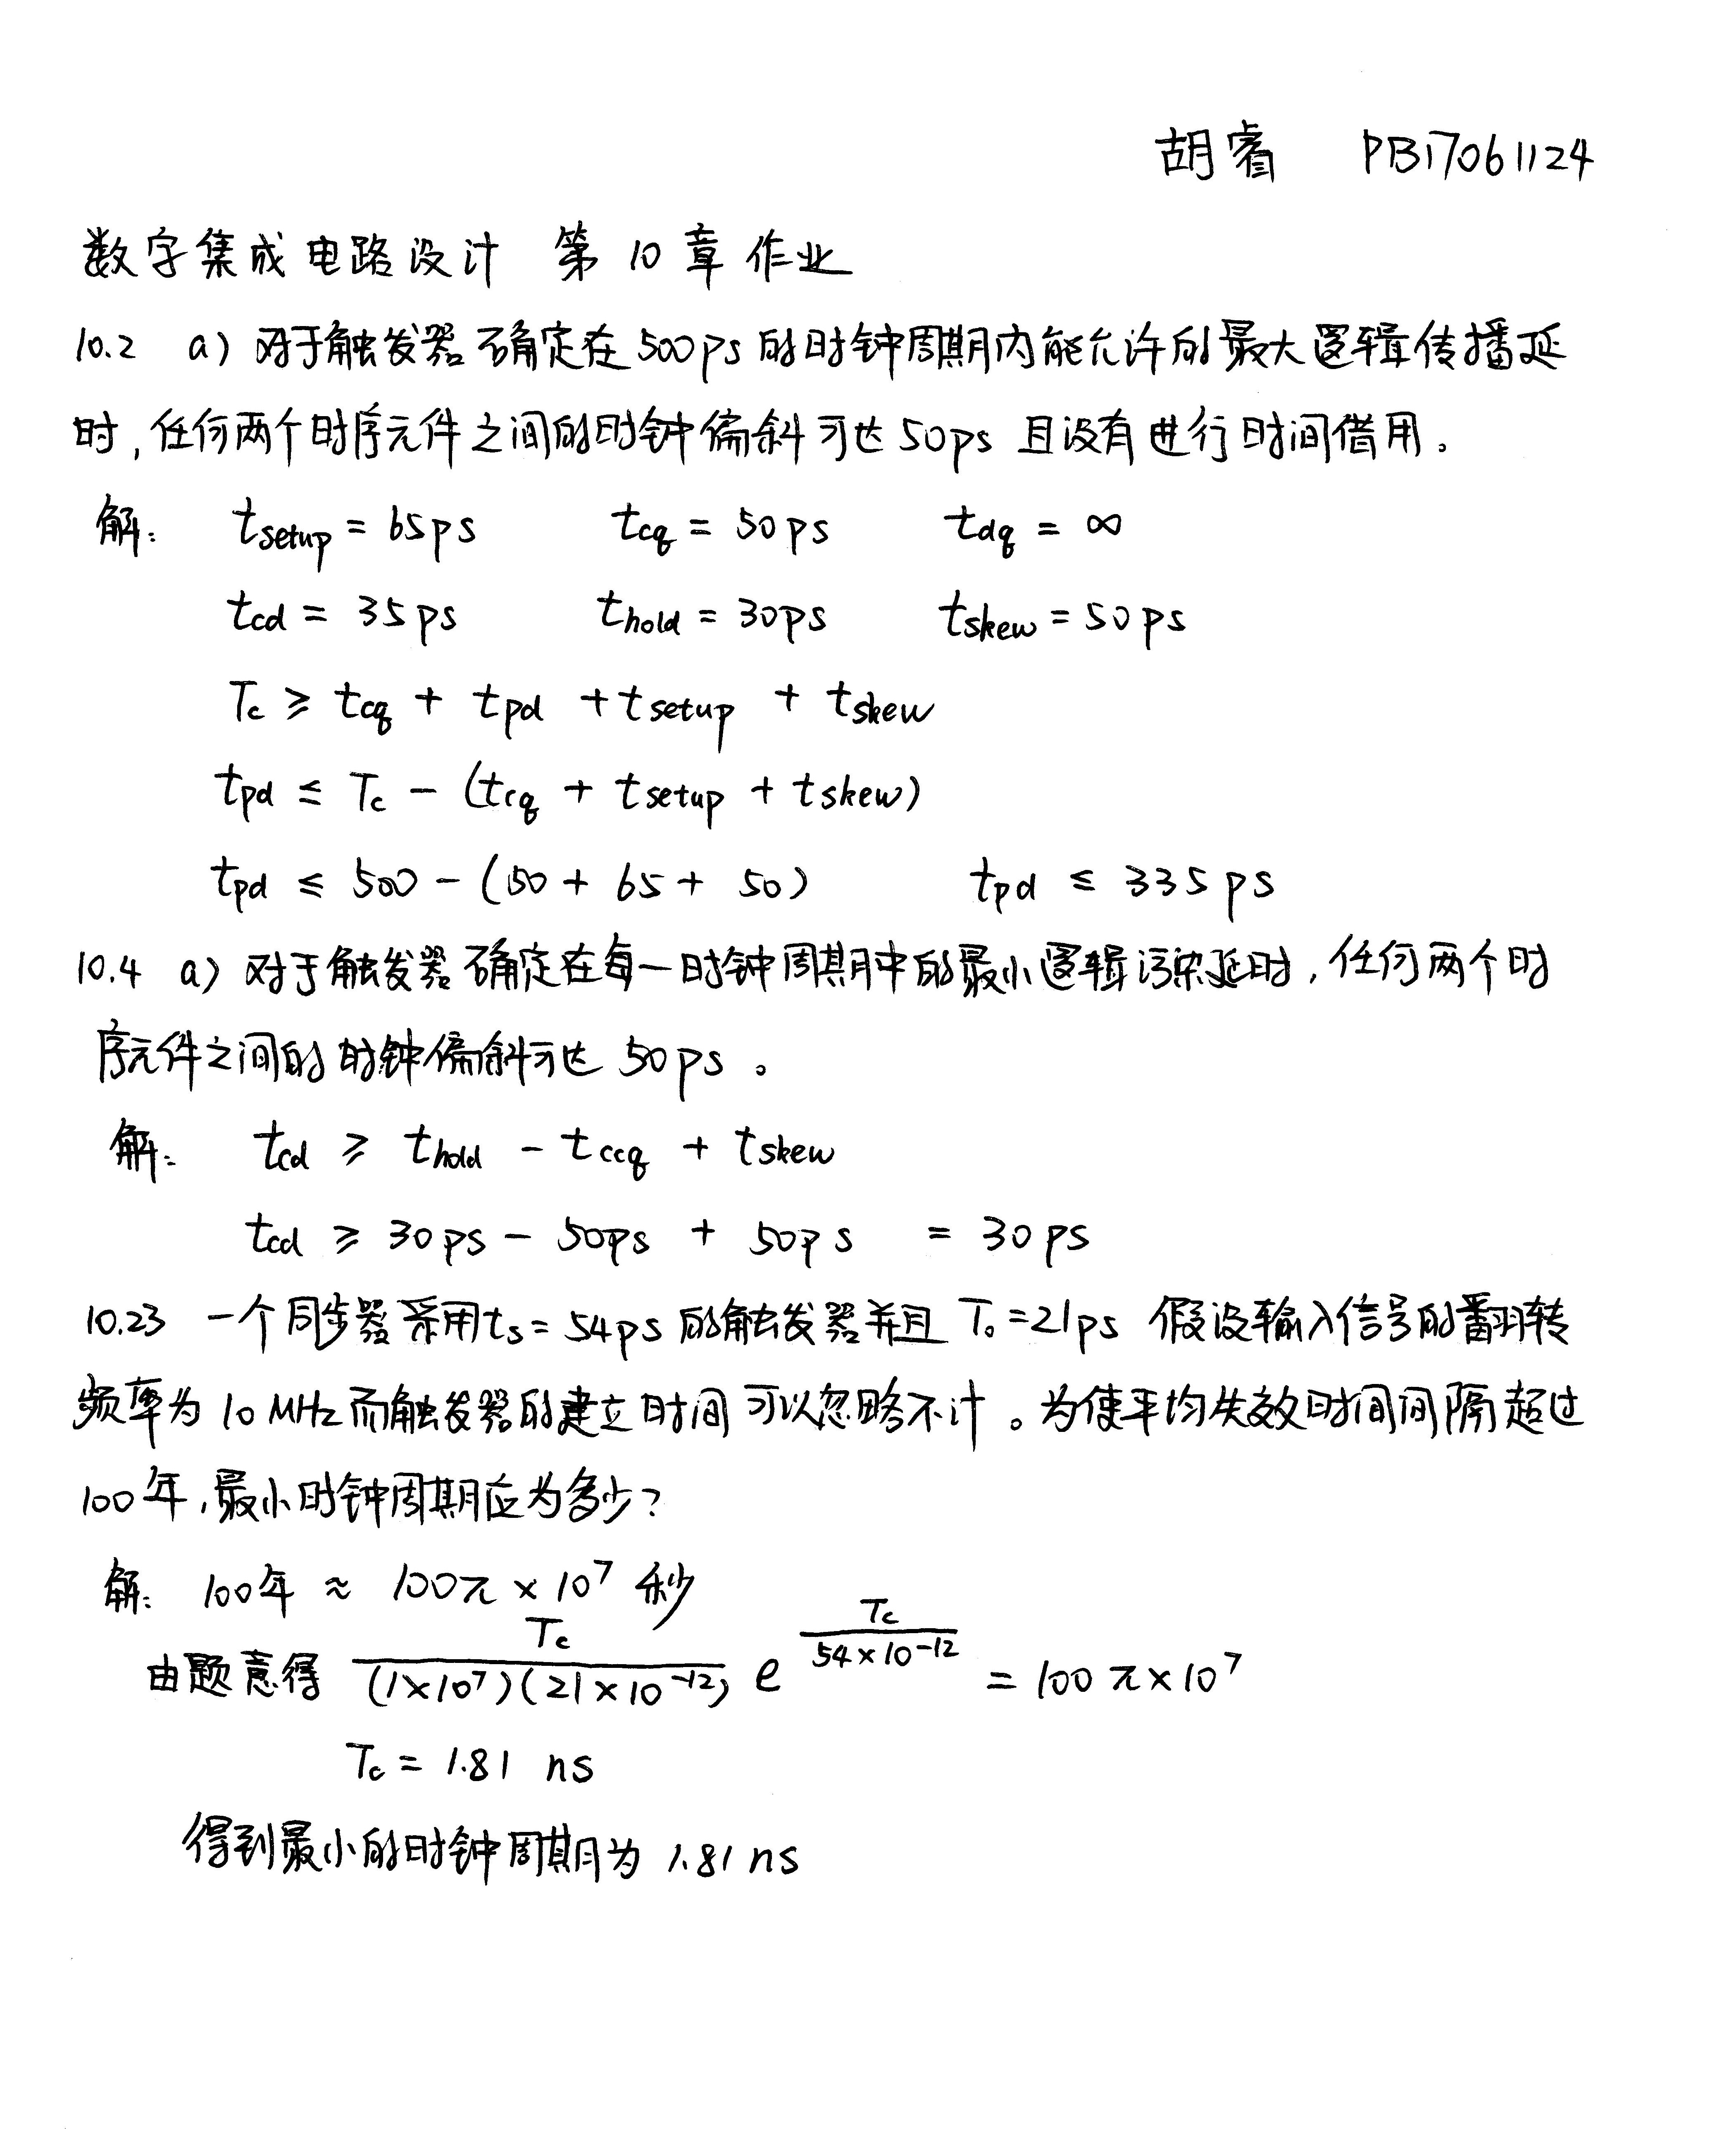 胡睿 PB17061124
数字集成电路设计 第10章作业
10.2 a) 对于触发器确定在500ps的时钟周期内能允许的最大逻辑传播延
时,任何两个时序元件之间的时钟偏斜可达50ps且没有进行时间借用。
解: tsetup = 65ps tcq = 50ps tdq = ∞
tcd = 35ps thold = 30ps tskew = 50ps
Tc ≥ tcq + tpd + tsetup + tskew
tpd ≤ Tc - (tcq + tsetup + tskew)
tpd ≤ 500 - (50 + 65 + 50) tpd ≤ 335ps
10.4 a) 对于触发器确定在每一时钟周期中的最小逻辑污染延时,任何两个时
序元件之间的时钟偏斜可达50ps。
解: tcd ≥ thold - tccq + tskew
tcd ≥ 30ps - 50ps + 50ps = 30ps
10.23 一个同步器采用ts=54ps的触发器并且 T₀=21ps 假设输入信号的翻转
频率为10MHz而触发器的建立时间可以忽略不计。为使平均失效时间间隔超过
100年,最小时钟周期应为多少?
解: 100年 ≈ 100π×10⁷ 秒
由题意得 Tc/((1×10⁷)(21×10⁻¹²)) e^(Tc/(54×10⁻¹²)) = 100π×10⁷
Tc = 1.81 ns
得到最小的时钟周期为 1.81ns